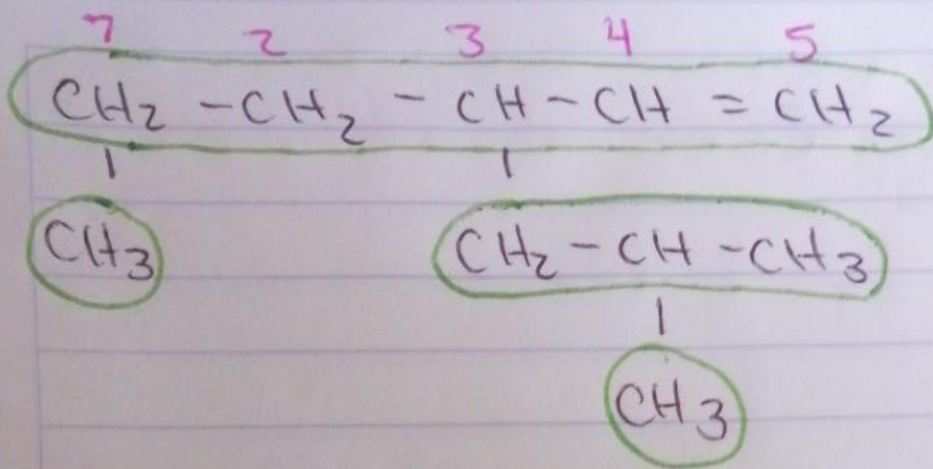 1 2 3 4 5
CH2 - CH2 - CH - CH = CH2
| |
CH3 CH2 - CH - CH3
|
CH3